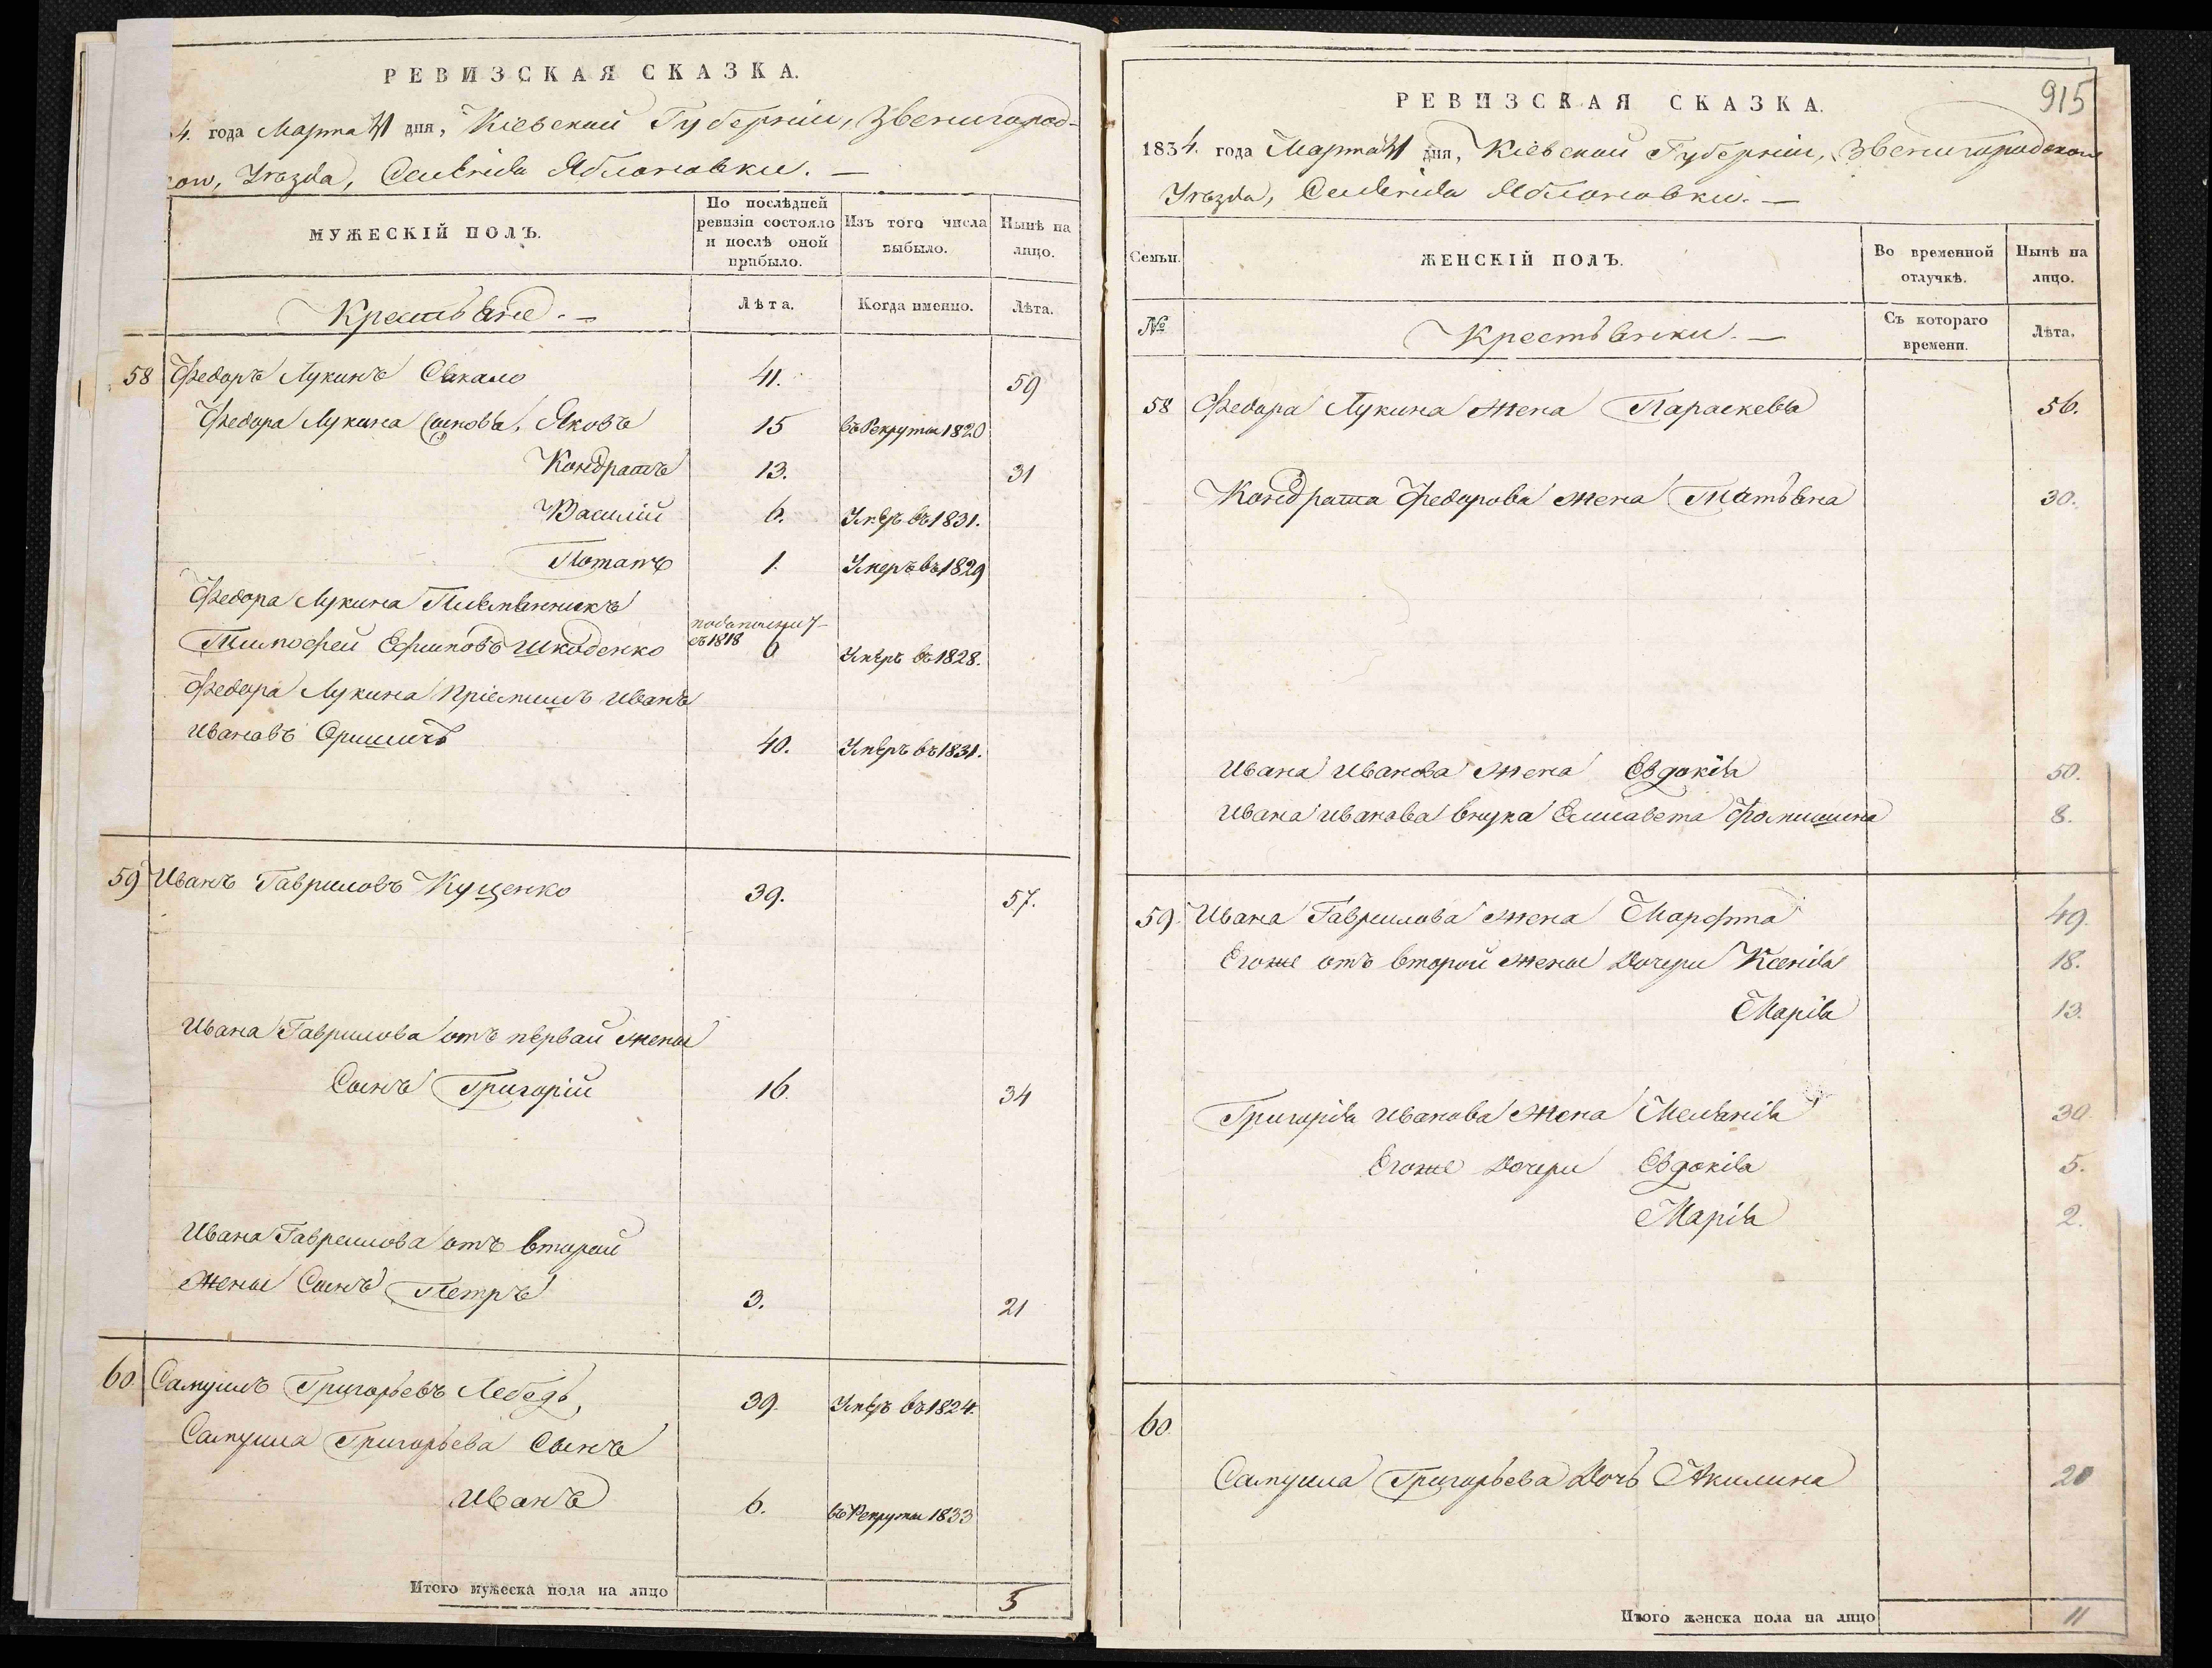 РЕВИЗСКАЯ СКАЗКА.
4. года Марта 31 дня, Кіевской Губерніи, Звенигород-
ской, Уѣзда, Селенія Яблоновки. —
МУЖЕСКІЙ ПОЛЪ.
По послѣдней ревизіи состояло и послѣ оной прибыло.
Изъ того числа выбыло.
Нынѣ на лицо.
Крестьяне. —
Лѣта.
Когда именно.
Лѣта.
58 Федоръ Лукинъ 41. 59
Федора Лукина Сыновья, Яковъ 15 въ Рекруты 1820
Кондратъ 13. 31
Василій 6. Умеръ въ 1831.
Потапъ 1. Умеръ въ 1829
Федора Лукина Племянникъ
Тимофей Ефимовъ Шкоденко съ 1818 6 Умеръ въ 1828.
Федора Лукина Пріемышъ Иванъ
Ивановъ 40. Умеръ въ 1831.
59 Иванъ Гавриловъ Куценко 39. 57.
Ивана Гаврилова отъ первой жены
Сынъ Григорій 16. 34
Ивана Гаврилова отъ второй
жены Сынъ Петръ 3. 21
60 Самуилъ Григорьевъ Лебедь, 39. Умеръ въ 1824.
Самуила Григорьева Сынъ
Иванъ 6. въ Рекруты 1833
Итого мужеска пола на лицо 5
915
РЕВИЗСКАЯ СКАЗКА.
1834. года Марта 31 дня, Кіевской Губерніи, Звенигородской
Уѣзда, Селенія Яблоновки. —
Семьи.
ЖЕНСКІЙ ПОЛЪ.
Во временной отлучкѣ.
Нынѣ на лицо.
№
Крестьянки. —
Съ котораго времени.
Лѣта.
58 Федора Лукина жена Параскева 56.
Кондрата Федорова жена Татьяна 30.
Ивана Иванова жена Евдокія 50.
Ивана Иванова внука Елисавета Фомишина 8.
59. Ивана Гаврилова жена Марфта 49.
Егоже отъ второй жены Дочери Ксенія 18.
Марія 13.
Григорія Иванова жена Меланія 30.
Егоже Дочери Евдокія 5.
Марія 2.
60
Самуила Григорьева Дочь Акилина 20
Итого женска пола на лицо 11